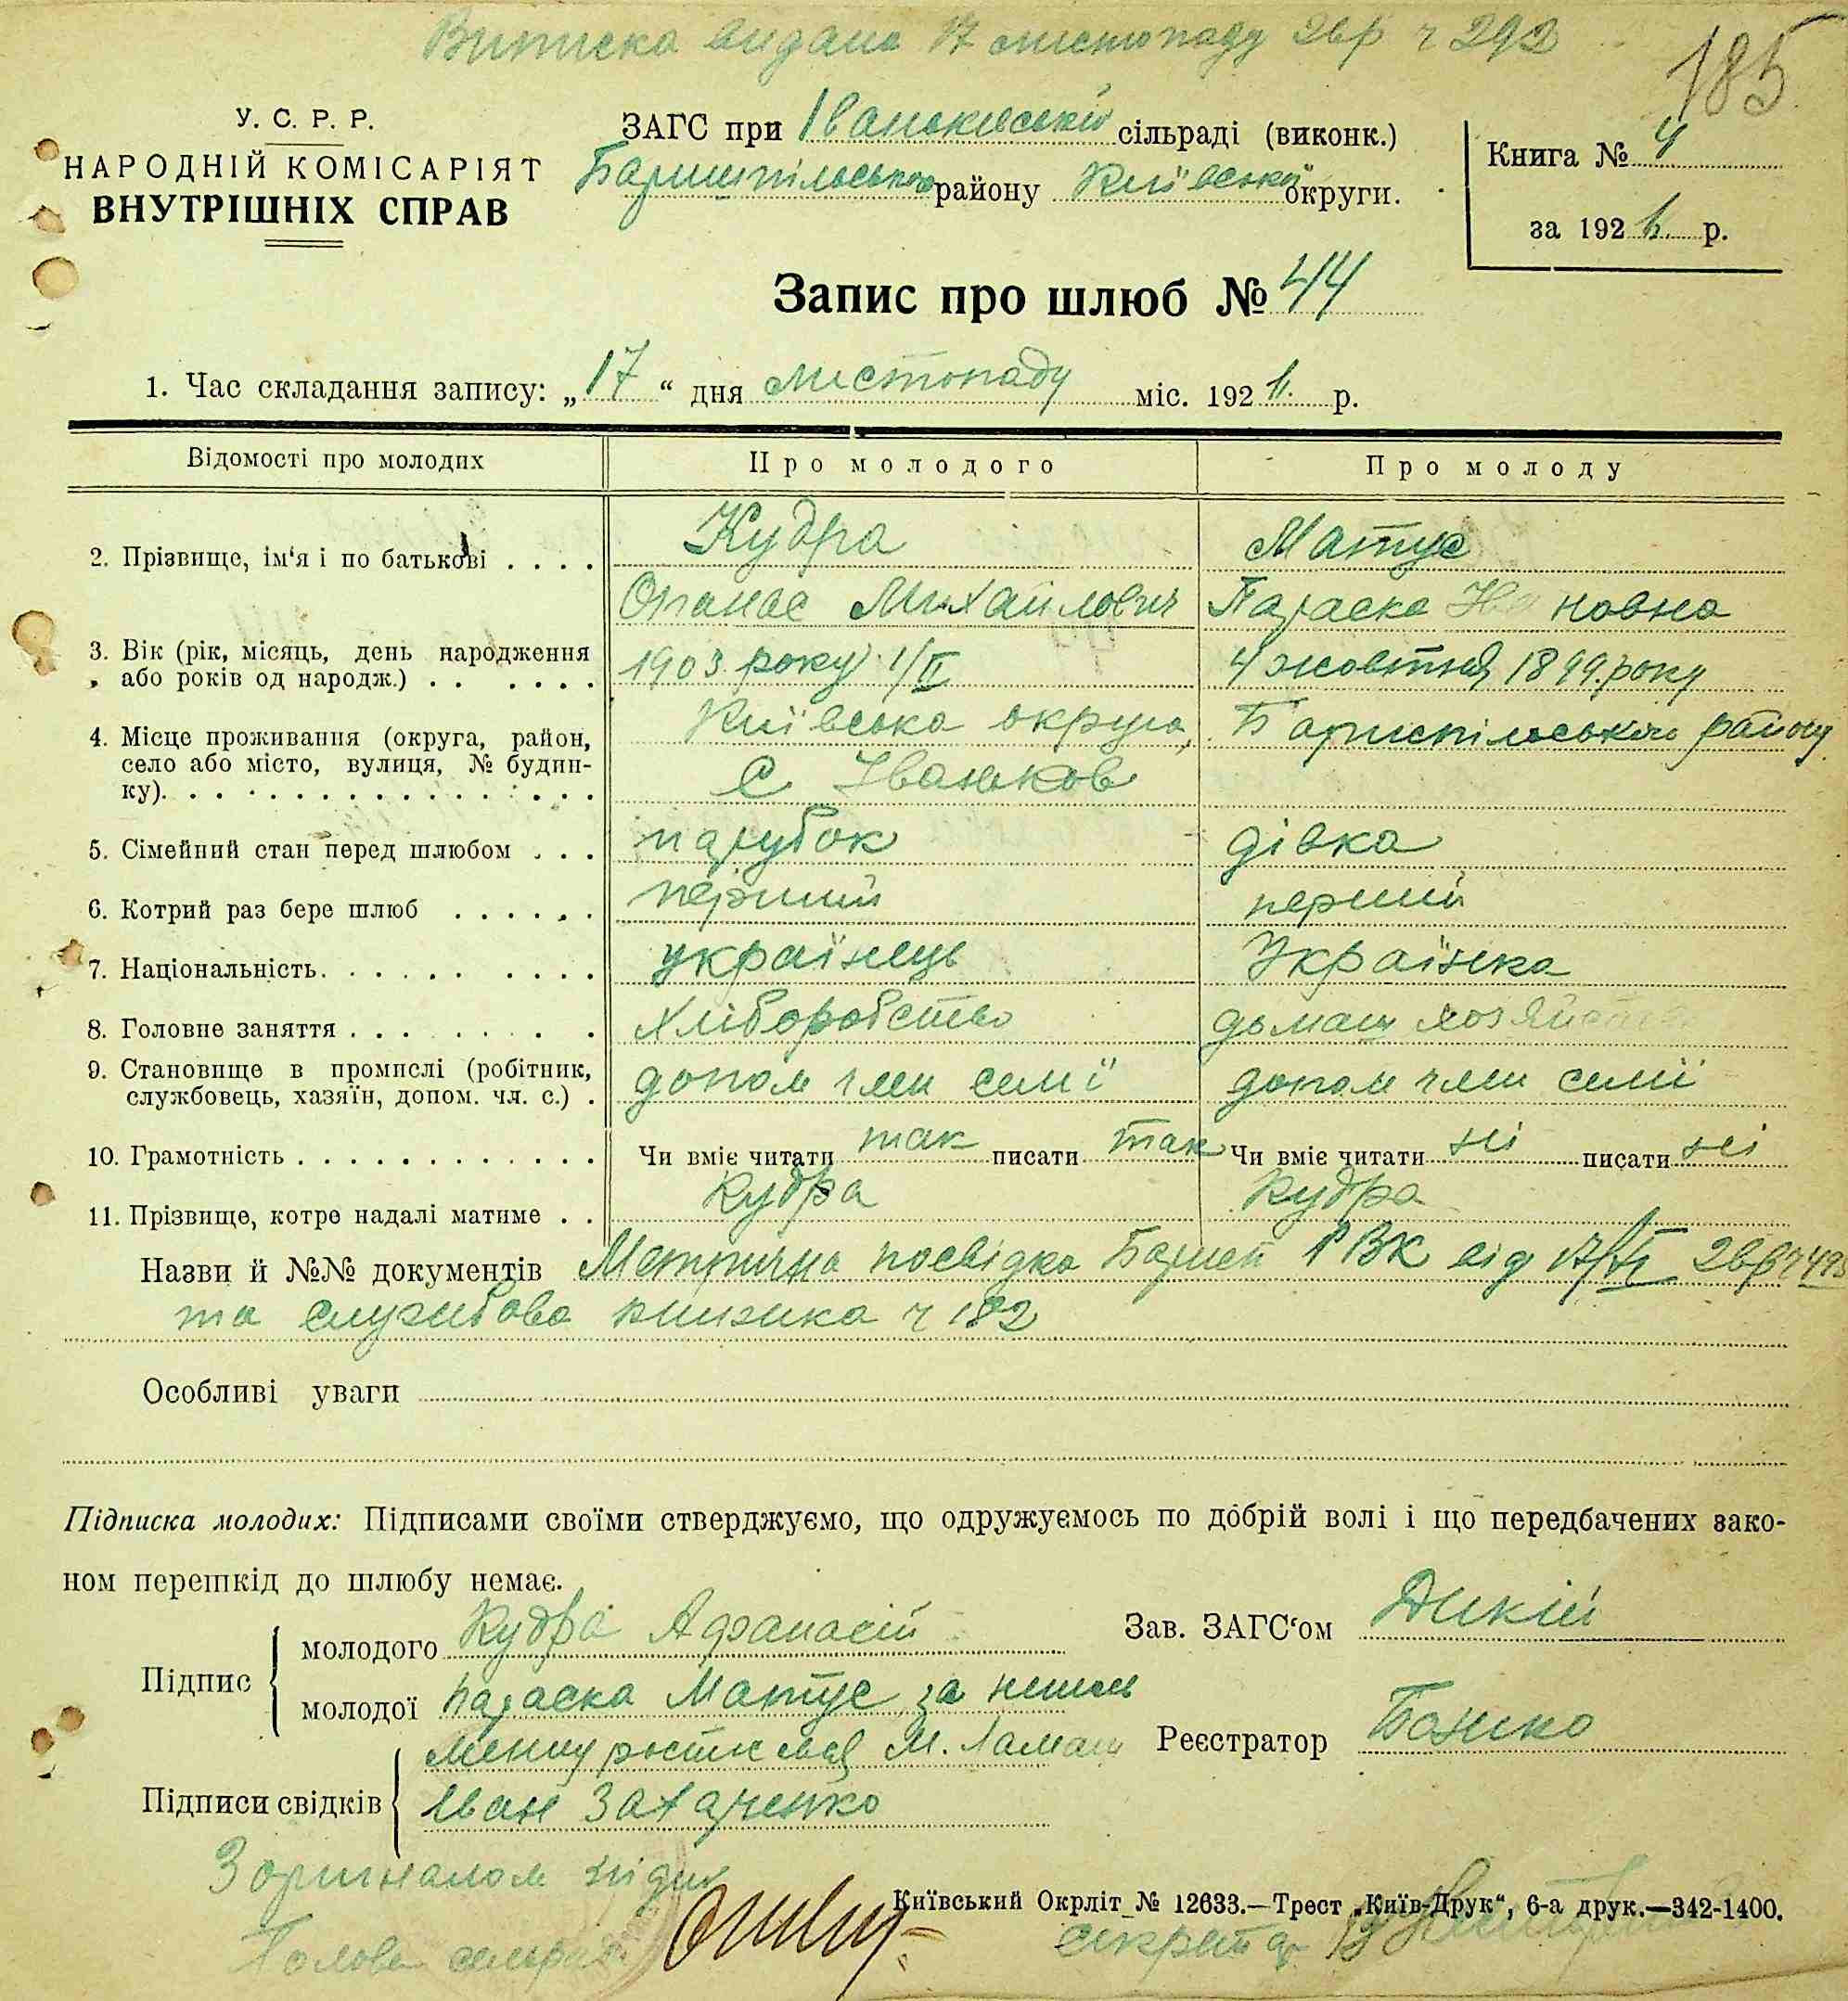 Виписка видана 17 листопаду 26 р ч 292
185
У. С. Р. Р.
НАРОДНІЙ КОМІСАРІЯТ
ВНУТРІШНІХ СПРАВ
ЗАГС при Іваньківській сільраді (виконк.)
Баришпільського району Київської округи.
Книга № 4
за 1926 р.
Запис про шлюб № 44
1. Час складання запису: „17“ дня листопаду міс. 1926 р.
Відомості про молодих Про молодого Про молоду
2. Прізвище, ім‘я і по батькові . . . . Кудра Матус
Опанас Михайлович Параска новна
3. Вік (рік, місяць, день народження 1903 року 1/II 4 жовтня 1899 року
або років од народж.) . . . . . .
4. Місце проживання (округа, район, Київська округа, Бариспільського району
село або місто, вулиця, № будин- С Іваньков
ку). . . . . . . . . . . . . . . .
5. Сімейний стан перед шлюбом . . . парубок дівка
6. Котрий раз бере шлюб . . . . . . перший перший
7. Національність. . . . . . . . . . українець Українка
8. Головне заняття . . . . . . . . хліборобство домаш хозяйст
9. Становище в промислі (робітник, допом член семї допом член семії
службовець, хазяїн, допом. чл. с.) .
10. Грамотність . . . . . . . . . . . . Чи вміє читати так писати так Чи вміє читати ні писати ні
11. Прізвище, котре надалі матиме . . Кудра Кудра
Назви й №№ документів Метрична посвідка Барисп РВК від 17/XI 26 р ч
та службова книжка ч 182
Особливі уваги
Підписка молодих: Підписами своїми стверджуємо, що одружуємось по добрій волі і що передбачених зако-
ном перешкід до шлюбу немає.
Підпис молодого Кудра Афанасій
молодої Параска Матус за неписьменну
Зав. ЗАГС‘ом Дикій
Реєстратор Божко
Підписи свідків М. Ламаш
Іван Захарченко
З оригналом згідно
Голова сельради
Київський Окрліт № 12633.—Трест „Київ-Друк“, 6-а друк.—342-1400.
секретар